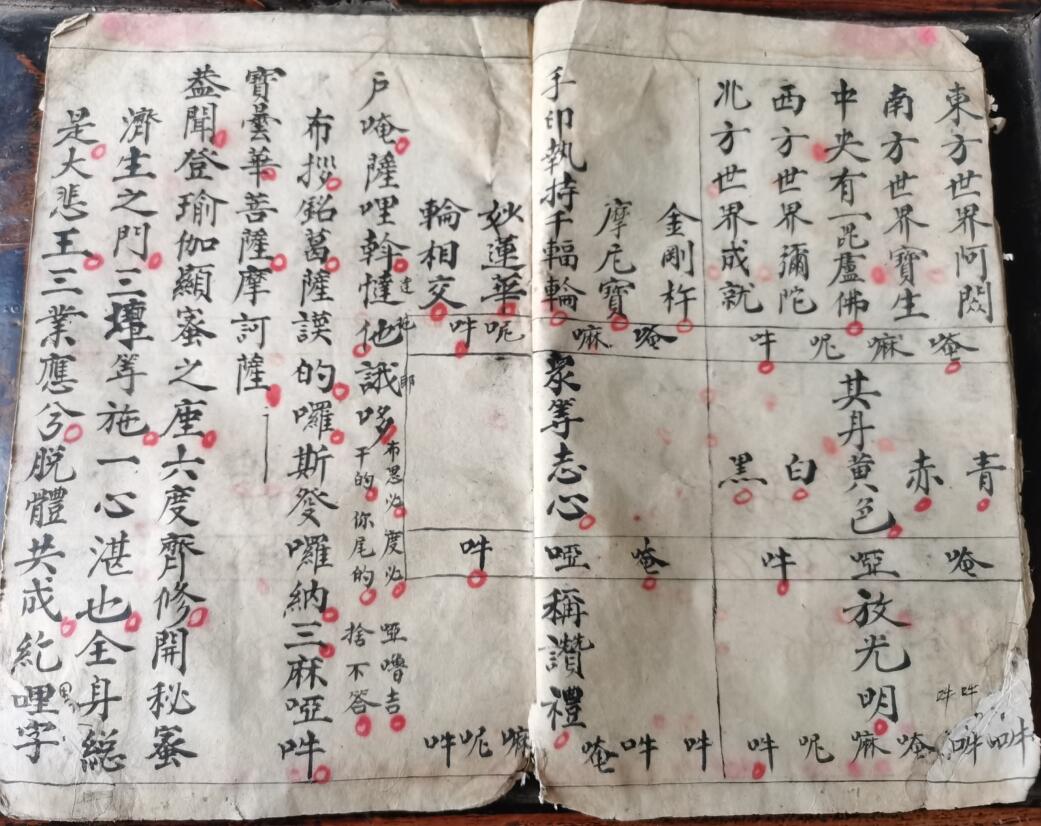 東方世界阿閦
南方世界寶生
中央有一毘盧佛
西方世界彌陀
北方世界成就
唵嘛呢吽
青
赤
其身黃色
白
黑
唵啞吽
放光明
吽吽
吽吽唵嘛呢吽
金剛杵
摩尼寶
手印執持千輻輪
妙蓮華
輪相交
唵嘛呢吽
眾等志心
唵啞吽
稱讚禮
吽吽唵嘛呢吽
戶唵薩哩斡怛他誐哆
布思必度必啞嚕吉
干的你尾的捨不答
布捴銘葛薩謨的囉斯癹囉納三麻啞吽
寶曇華菩薩摩訶薩
蓋聞登瑜伽顯蜜之座六度齊修開秘蜜
濟生之門三壇等施一心湛也全身縂
是大悲王三業應兮脫體共成紇哩字